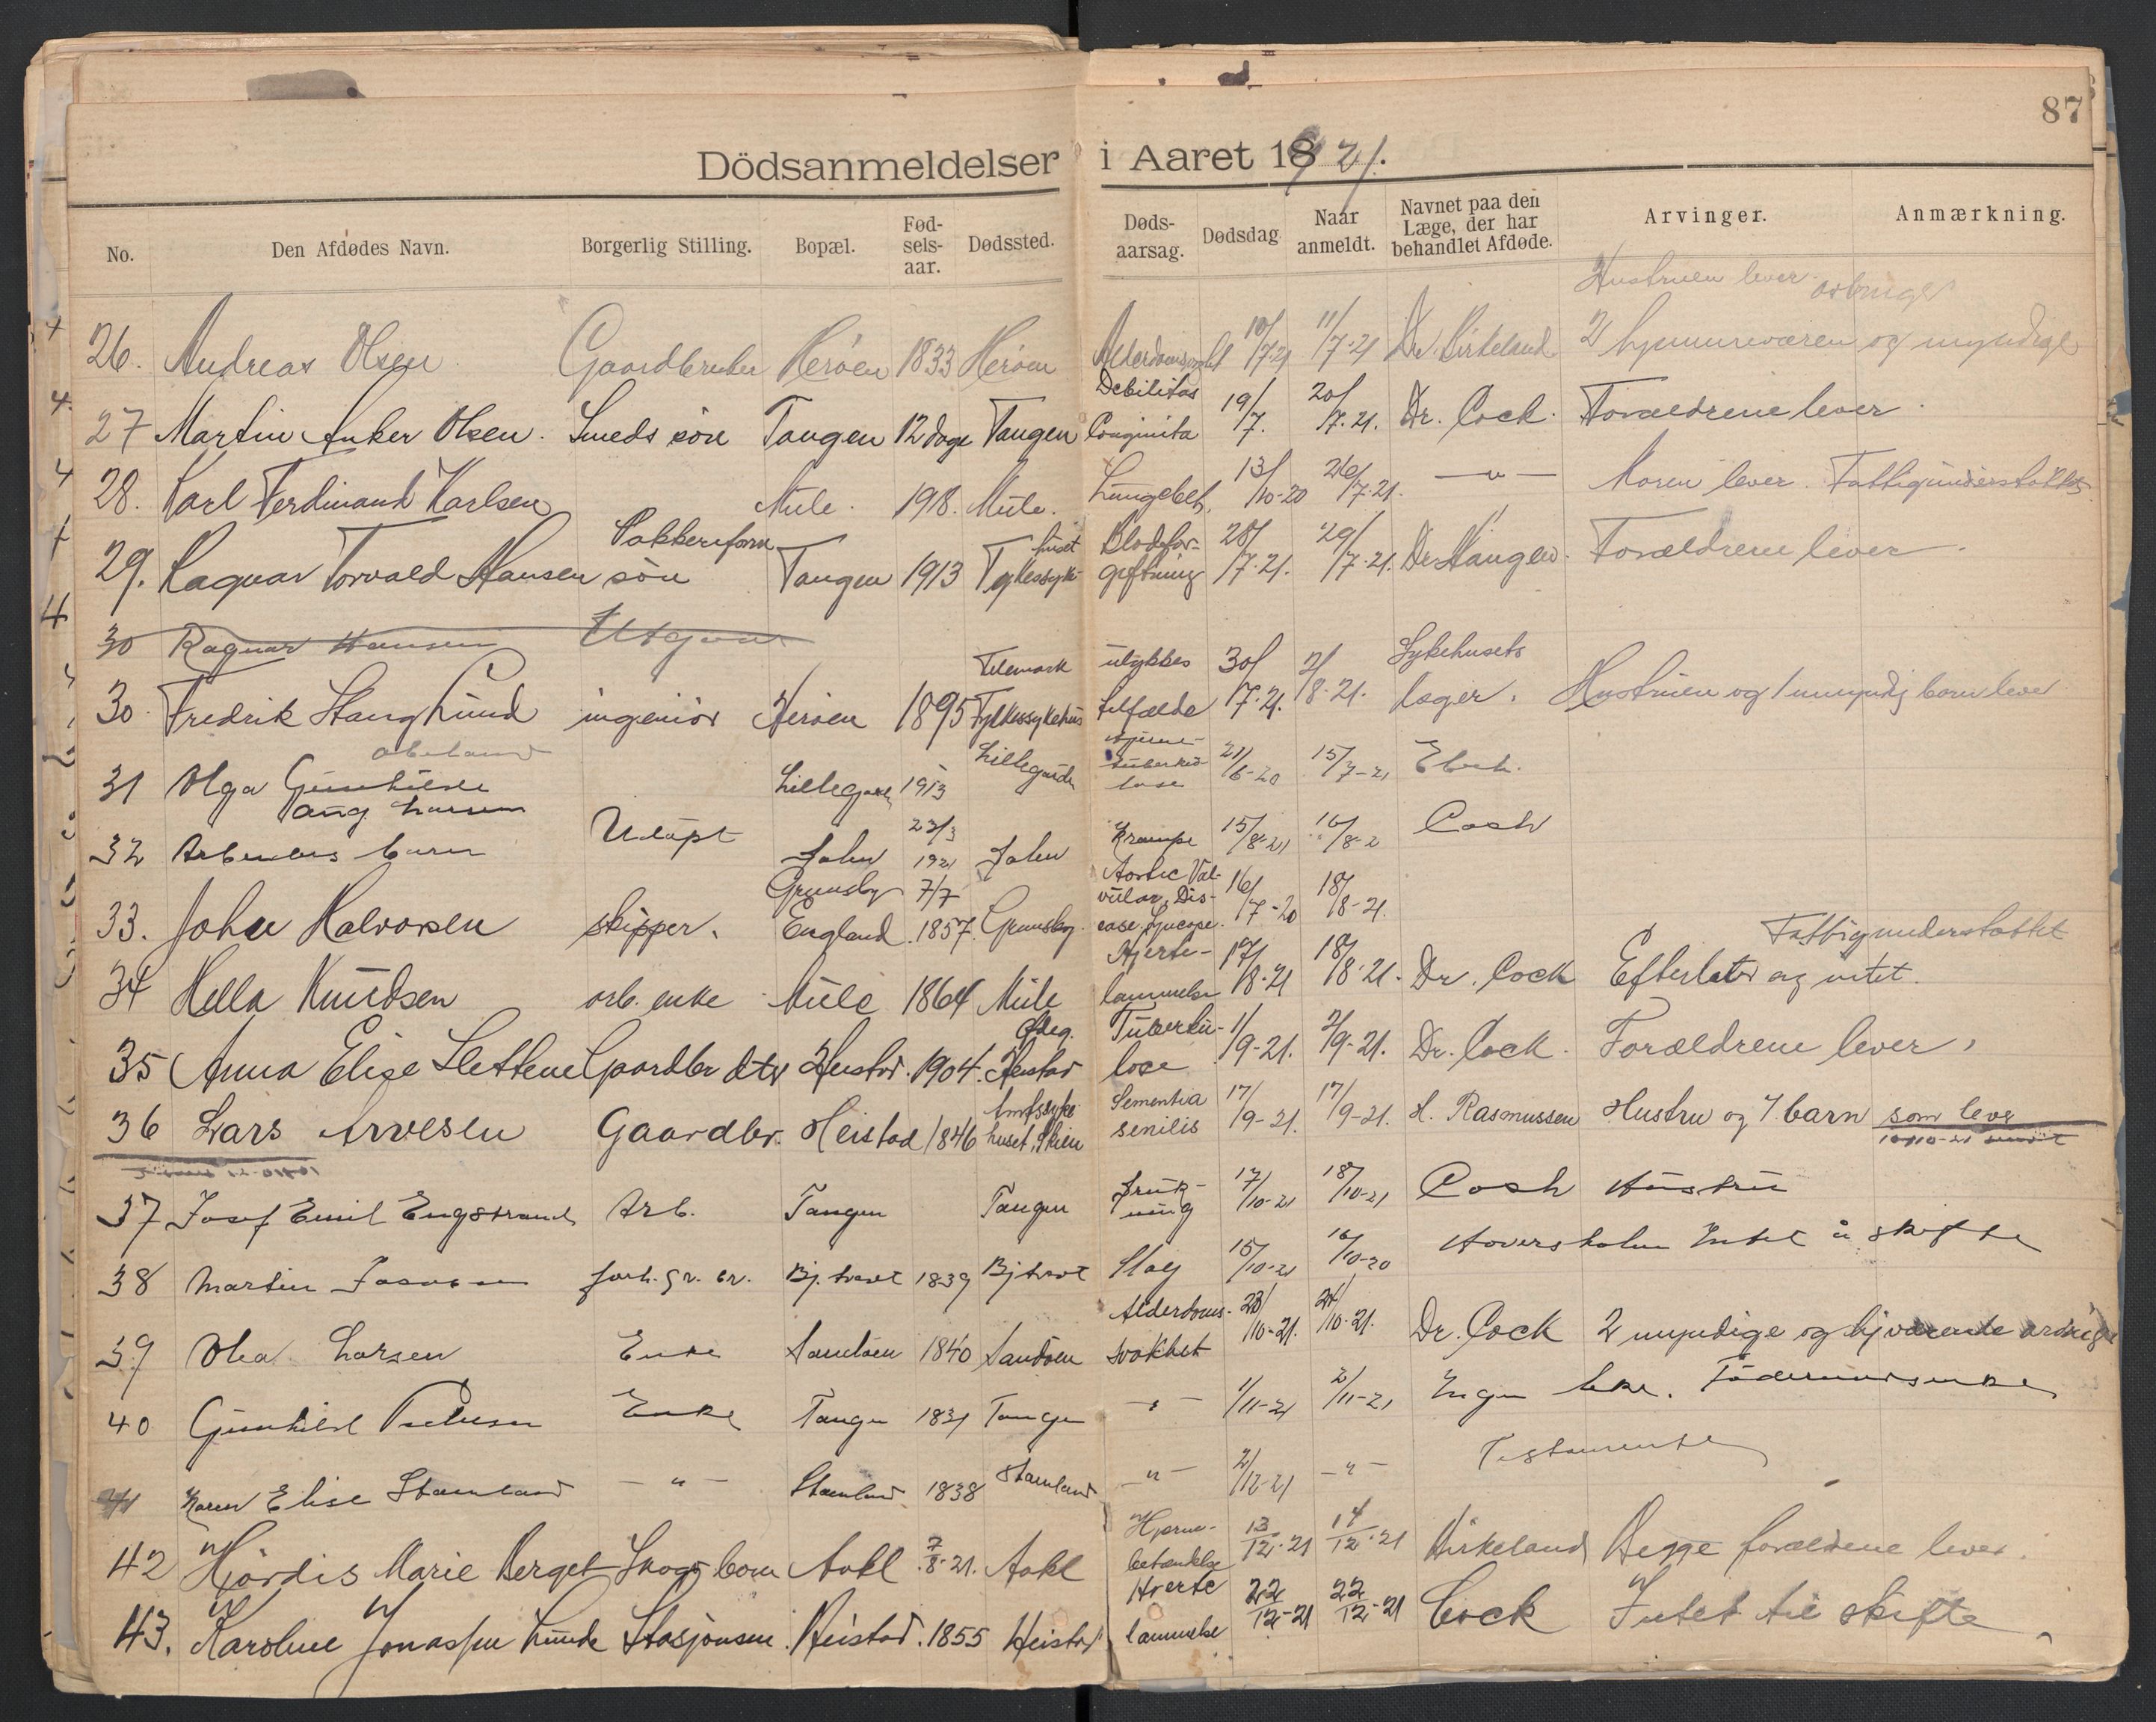 87
Dödsanmeldelser i Aaret 1921.
No. Den Afdødes Navn. Borgerlig Stilling. Bopæl. Fødselsaar. Dødssted. Dødsaarsag. Dødsdag Naar anmeldt. Navnet paa den Læge, der har behandlet Afdøde. Arvinger. Anmærkning.
Hustruen lever
26. Andreas Olsen Gaardbruker Herøen 1833 Herøen 10/7-21 11/7-21 Dr. Birkeland 2 og myndige
27 Martin Anker Olsen. Smeds søn Tangen 12 dage Tangen Debilitas Conginita 19/7. 20/7.21. Dr. Cock. Forældrene lever.
28. Karl Ferdinand Karlsen Mule. 1918. Mule. Lungebet. 13/10-20 26/7.21. —"— Moren lever. Fattigunderstøttet
29. Ragnar Torvald Hansen søn Tangen 1913 Fylkessykehuset Blodforgiftning 28/7.21. 29/7.21. Dr Haugen. Forældrene lever.
30 Ragnar Hansen Utgaar
30. Fredrik Stang Lund ingeniør Herøen 1895 Telemark Fylkessykehus ulykkestilfælde 30/7.21. 2/8.21. Sykehusets læger. Hustruen og 1 umyndig barn lever
31 Olga Gunhilde Lillegaard 1913 Lillegaarden tuberkulose 21/6-20 15/7-21
Aug Larsen
32 Arbeiders barn Udøpt John 23/3 1921 John Krampe 15/8-21 16/8-2 Cock
33. John Halvorsen skipper. Grimsby England 7/7 1857. Grimsby Aortic Valvular Disease, Syncope. 16/7-20 18/8-21.
Fattigunderstøttet
34 Hella Knudsen arb. enke Mule 1864 Mule Hjertelammelse 17/8.21 18/8.21. Dr. Cock Efterlater sig intet.
35 Anna Elise Slettene Gaardbr dtr Heistad. 1904. Heistad Tuberkulose 1/9-21. 2/9-21. Dr. Cock. Forældrene lever.
36 Lars Arvesen Gaardbr. Heistad 1846 Amtssykehuset, Skien Sementia senilis 17/9-21. 17/9-21. H. Rasmussen Hustru og 7 barn som lever
37 Josef Emil Engstrand Arb. Tangen Tangen Drukning 17/10-21 18/10-21 Cock Hustru
38 Martin 1839 Slag 15/10-21 16/10-20 Intet å skifte
39 Olea Larsen Enke Sandøen 1840 Sandøen Alderdomssvakhet 23/10-21. 24/10-21. Dr. Cock 2 myndige og hjværende arvinger
40 Gunhild Enke Tangen 1831 Tangen —"— 1/11-21 2/11-21 Ingen
41 Karen Elise Stamland —"— Stamland 1838 Stamland —"— 2/12-21 —"— Testamente
42 Hjördis Marie Berget Skogs barn Aakl 7/8-21. Aakl Hjernebetændelse 13/12-21 14/12-21 Birkeland Begge forældrene lever.
43. Karoline Jonassen Lunde Heistad. 1855 Heistad Hjertelammelse 22/12-21 22/12-21 Cock Intet til skifte